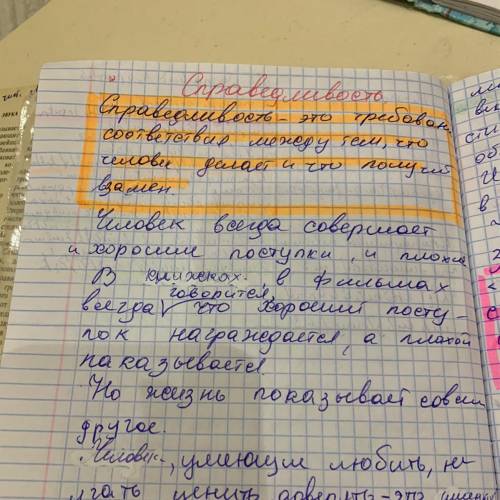 Справедливость
Справедливость – это требован
соответствия между тем, что
человек делает и что получ
взамен.
Человек всегда совершает
и хорошие поступки, и плохие
В книжках. в фильмах
говорится,
всегда что хороший посту-
пок награждается, а плохой
наказывается
Но жизнь показывает совсем
другое.
Человек, умеющий любить, не
лгать ценить доверять – это